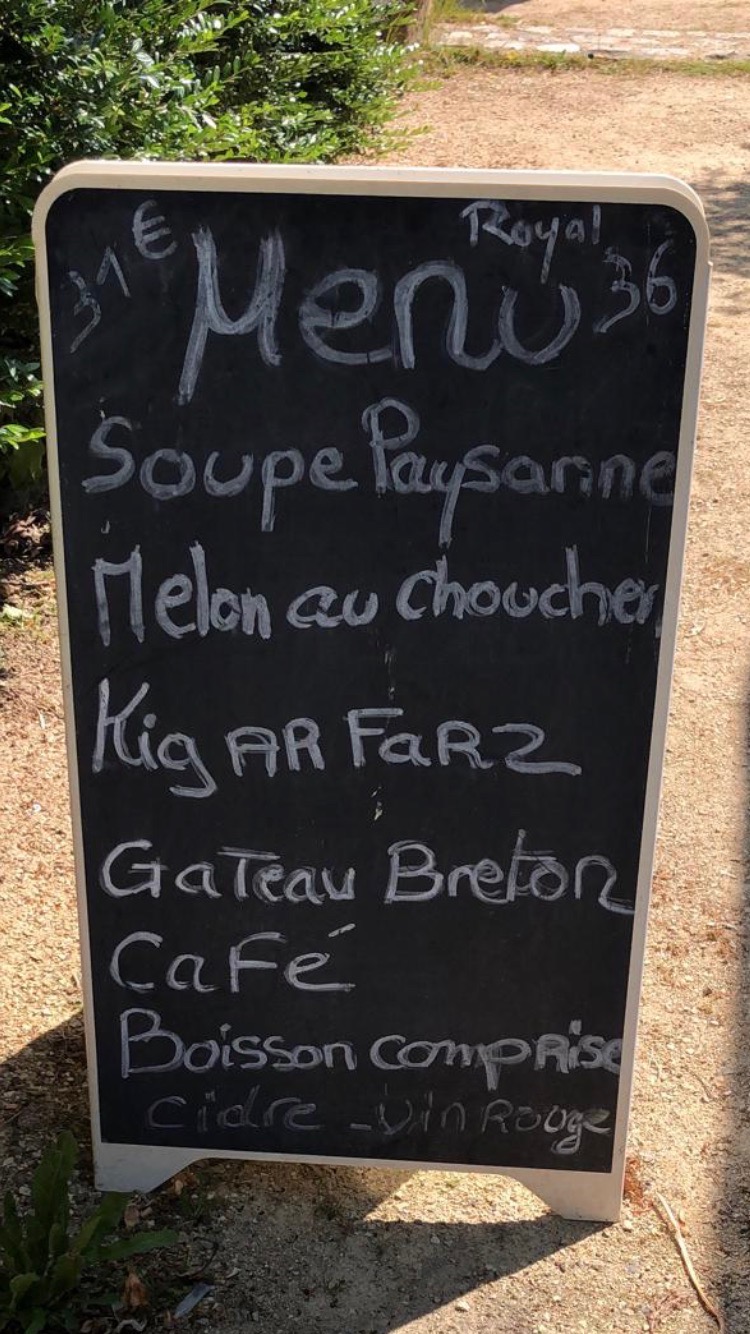 31€ Menu Royal 36
Soupe Paysanne
Melon au chouchen
Kig AR FaRz
GaTeau Breton
CaFé
Boisson compRise
Cidre - vin Rouge